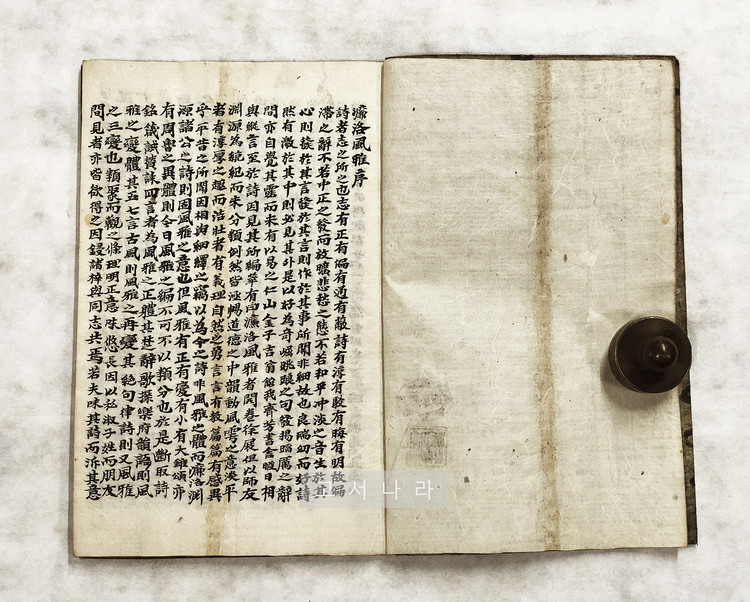 濂洛風雅序
詩者志之所之也志有正有偏有通有蔽詩有淳有駁有晦有明故偏
滯之辭不若中正之發而放曠悲愁之態不若和平冲淡之音生於其
心則發於其言發於其言則作於其事所關非細故也良瑞幼而好詩
然有激於其中則必見其外是以好為奇崛跳踉之句發揚蹈厲之辭
間亦自覺其靈而未有以易之仁山金子吉翁館我齊芳書舍暇日相
與縱言至於詩因見其所編萃有曰濂洛風雅者開卷徐展但以師友
淵源為統紀而未分類例然皆涵暢道德之中韻動風雲之意淡平
者有淳厚之趣而浩壯者有義理自然之勇言言有教篇篇有感異
乎平昔之所聞因相與紬繹之竊以為今之詩非風雅之體而濂洛淵
源諸公之詩則固風雅之意也但風雅有正有變有小有大雖頌亦
有周魯之異體則今日風雅之編不可不以類分也於是斷取詩
銘箴誡贊誄四言者為風雅之正體其楚辭歌操樂府韻語則風
雅之變體其五七言古風則風雅之再變其絕句律詩則又風雅
之三變也類聚而觀之條理明正意味悠長因以私淑子姪而朋友
間見者亦皆欲得之因鋟諸梓與同志共焉若夫味其詩而泝其意
고서나라